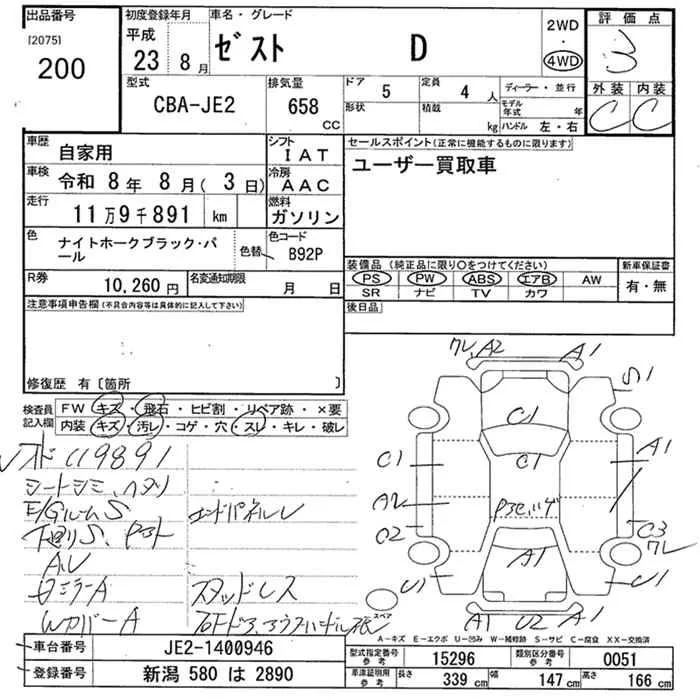 出品番号
[2075]
200
初度登録年月
平成
23年 8月
車名・グレード
ゼスト D
2WD
・
4WD
評価点
3
外装 内装
C C
型式
CBA-JE2
排気量
658
CC
ドア 5
定員 4 人
形状
積載 kg
ディーラー・並行
モデル年式 年
ハンドル 左・右
車歴 自家用
シフト IAT
車検 令和 8年 8月( 3日)
冷房 AAC
走行 11万9千891 km
燃料 ガソリン
色 ナイトホークブラック・パール
色替
色コード B92P
R券 10,260円
名変通知期限 月 日
注意事項申告欄(不具合内容等は具体的に記入して下さい)
修復歴 有〔箇所 〕
セールスポイント(正常に機能するものに限ります)
ユーザー買取車
装備品(純正品に限り○をつけてください)
PS PW ABS エアB AW
SR ナビ TV カワ
新車保証書
有・無
後日品
検査員記入欄
FW キズ・飛石・ヒビ割・リペア跡・×要
内装 キズ・汚レ・コゲ・穴・スレ・キレ・破レ
119891
シートシミ、ヘタリ
E/GルームS
エンドパネルU
下廻りS、
AU
ミラーA
スタッドレス
WカバーA
A2
A1
S1
C1
C1
C1
A1
A2
C2
C3
A1
U1
U1
A1
U2
A1
スペア
A-キズ E-エクボ U-凹み W-補修跡 S-サビ C-腐食 XX-交換済
車台番号 JE2-1400946
登録番号 新潟 580 は 2890
型式指定番号 参考 15296
類別区分番号 参考 0051
車庫証明用 参考 長さ 339 cm 幅 147 cm 高さ 166 cm